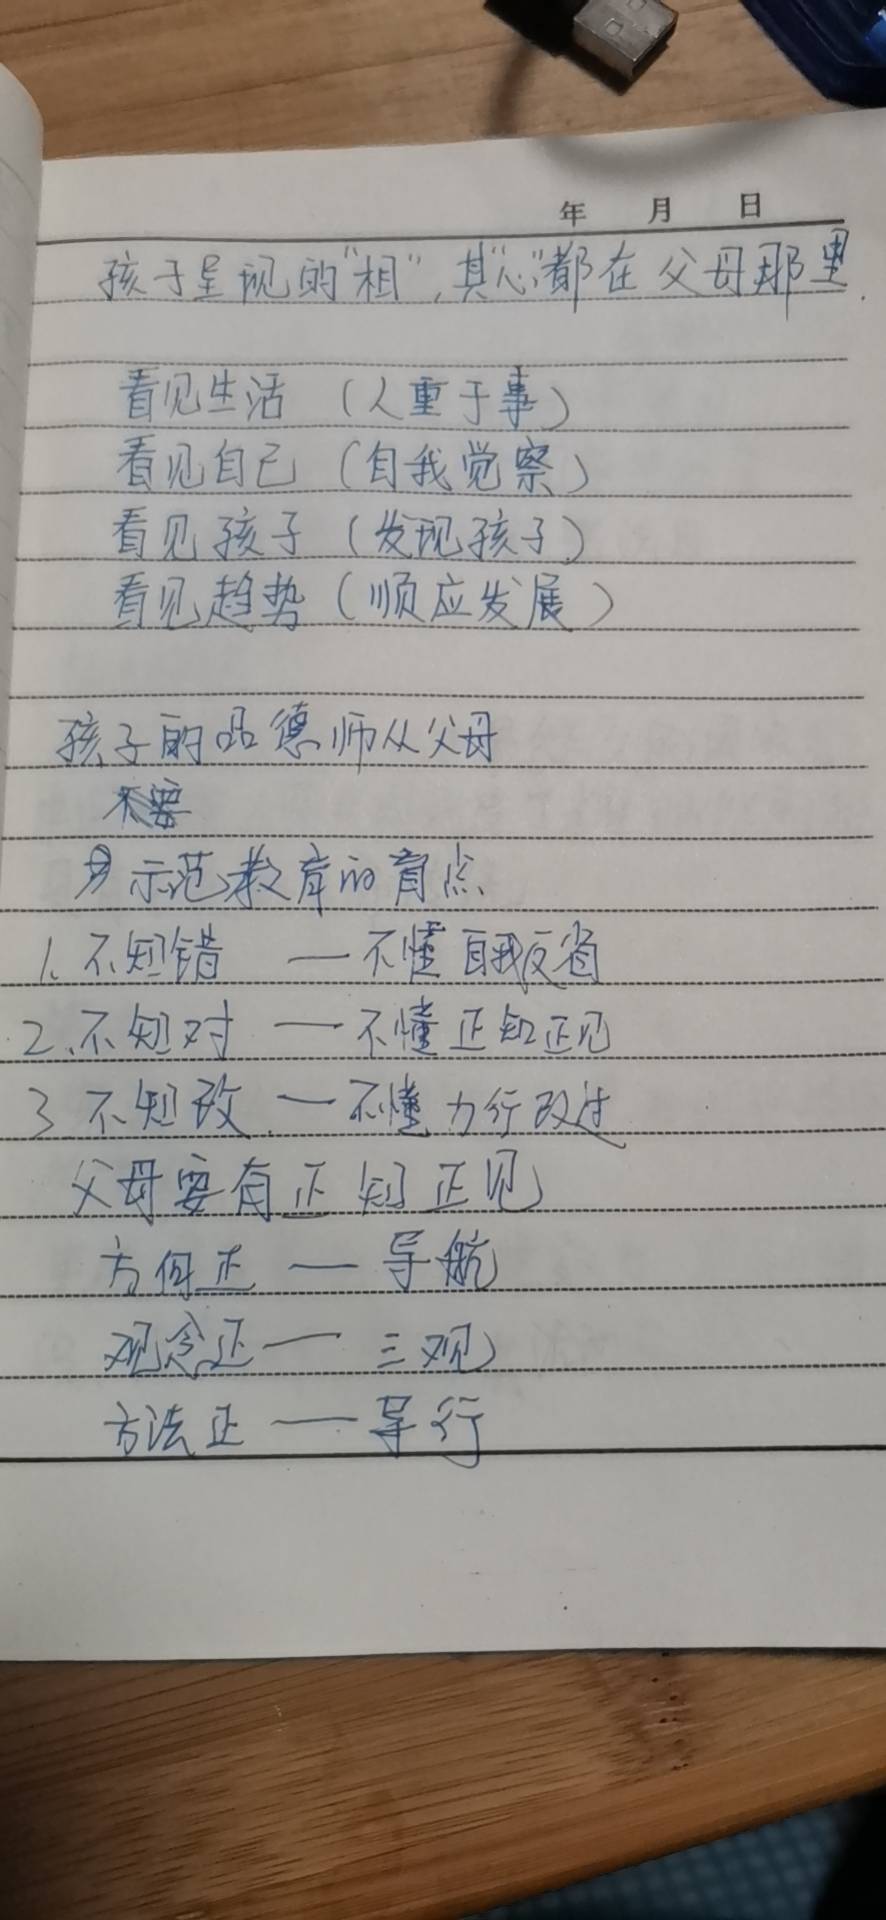 年 月 日
孩子呈现的"相",其"心"都在父母那里.
看见生活（人重于事）
看见自己（自我觉察）
看见孩子（发现孩子）
看见趋势（顺应发展）
孩子的品德师从父母
示范教育的盲点
1、不知错 — 不懂自我反省
2、不知对 — 不懂正知正见
3、不知改 — 不懂力行改过
父母要有正知正见
方向正 — 导航
观念正 — 三观
方法正 — 导行